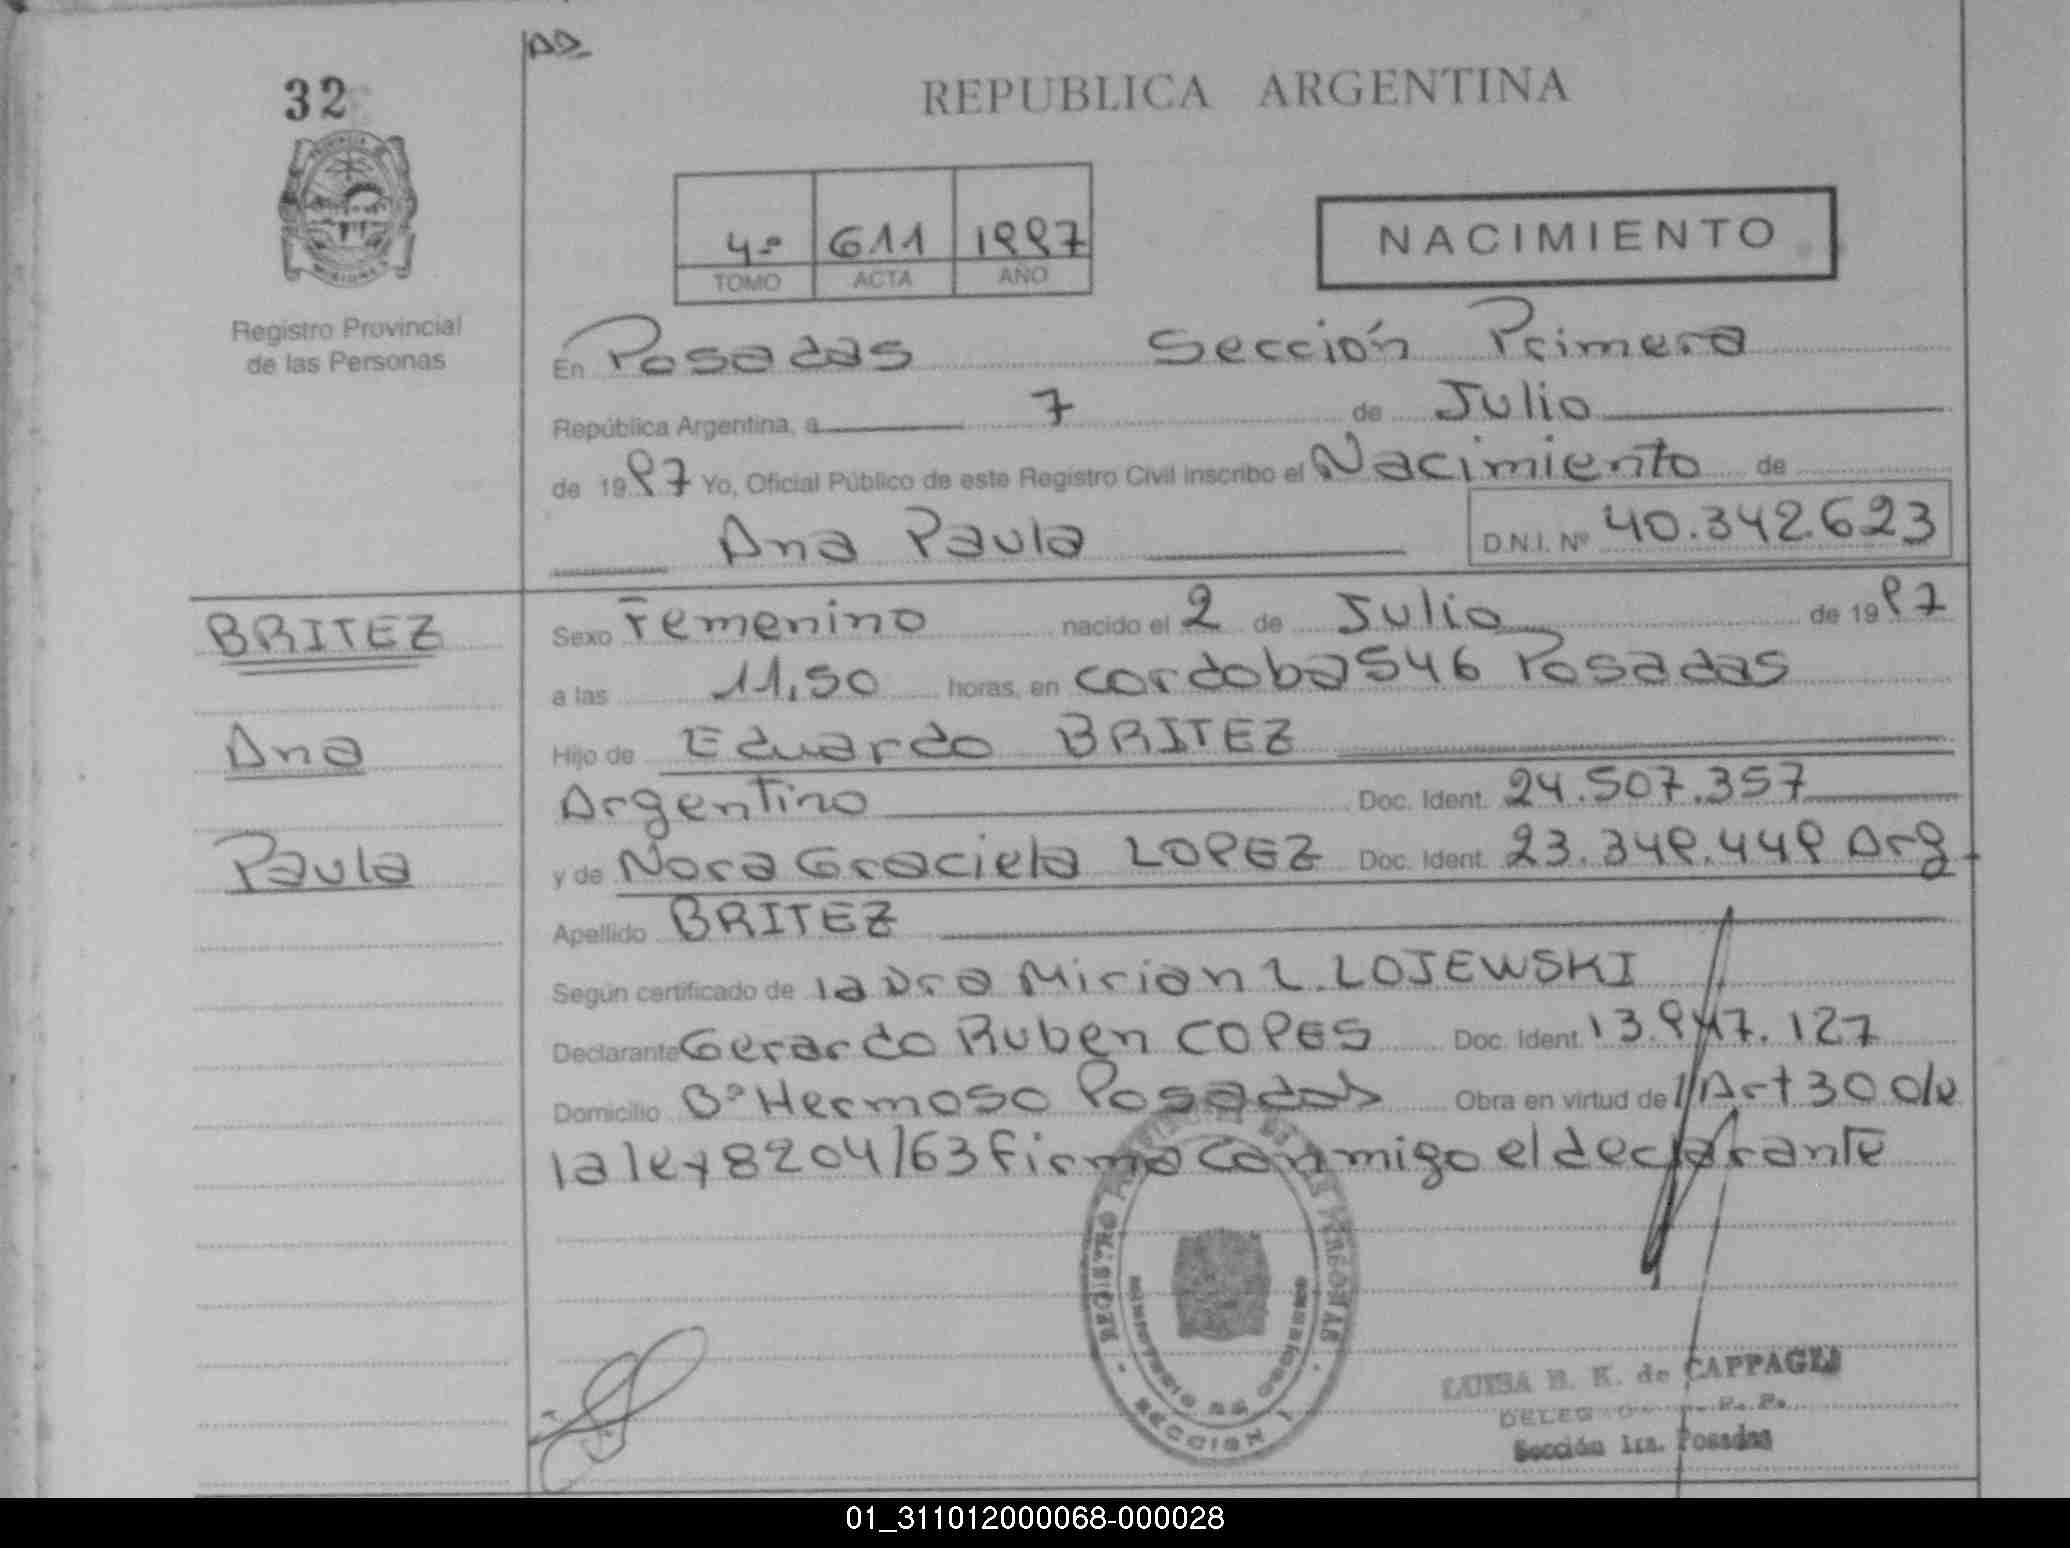 32
REPUBLICA ARGENTINA
4º 611 1997
TOMO ACTA AÑO
NACIMIENTO
Registro Provincial
de las Personas
En Posadas Sección Primera
República Argentina, a 7 de Julio
de 1997 Yo, Oficial Público de este Registro Civil inscribo el Nacimiento de
Ana Paula D.N.I. Nº 40.342.623
BRITEZ
Ana
Paula
Sexo Femenino nacido el 2 de Julio de 1997
a las 11,50 horas, en cordoba 546 Posadas
Hijo de Eduardo BRITEZ
Argentino Doc. Ident. 24.507.357
y de Nora Graciela LOPEZ Doc. Ident. 23.349.449 Arg
Apellido BRITEZ
Según certificado de la Dra Mirian L. LOJEWSKI
Declarante Gerardo Ruben COPES Doc. Ident. 13.947.127
Domicilio Bº Hermoso Posadas Obra en virtud del Art 30 de
la ley 8204/63 firma conmigo el declarante
REGISTRO PROVINCIAL DE LAS PERSONAS
MINISTERIO DE GOBIERNO
SECCION 1
LUISA B. K. de CAPPAGLI
Sección 1ra. Posadas
01_311012000068-000028